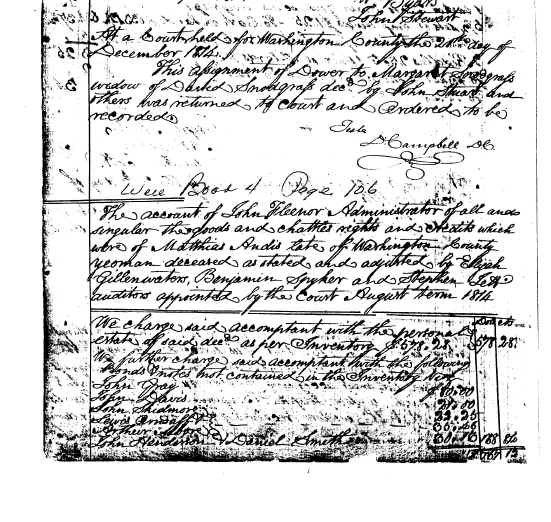 John Stewart
At a Court held for Washington County the 20th day of
December 1814
This assignment of Dower to Margaret Snodgrass
widow of David Snodgrass decd by John Stuart and
others was returned to Court and Ordered to be
recorded
Teste
D Campbell DC
Will Book 4 Page 106
The account of John Fleenor Administrator of all and
singular the goods and chattles rights and credits which
were of Matthias Andis late of Washington County
yeoman deceased as stated and adjusted by Elijah
Gillenwators, Benjamin Spyker and Stephen
auditors appointed by the Court August term 1814
Dolls cts
We charge said accomptant with the personal
estate of said decd as per Inventory $578.28 578 28
We further charge said accomptant with the following
Bonds & notes not contained in the Inventory
John Gray
John Davis
John Skidmore
Lewis
John Henderson & Daniel Smith 188 86